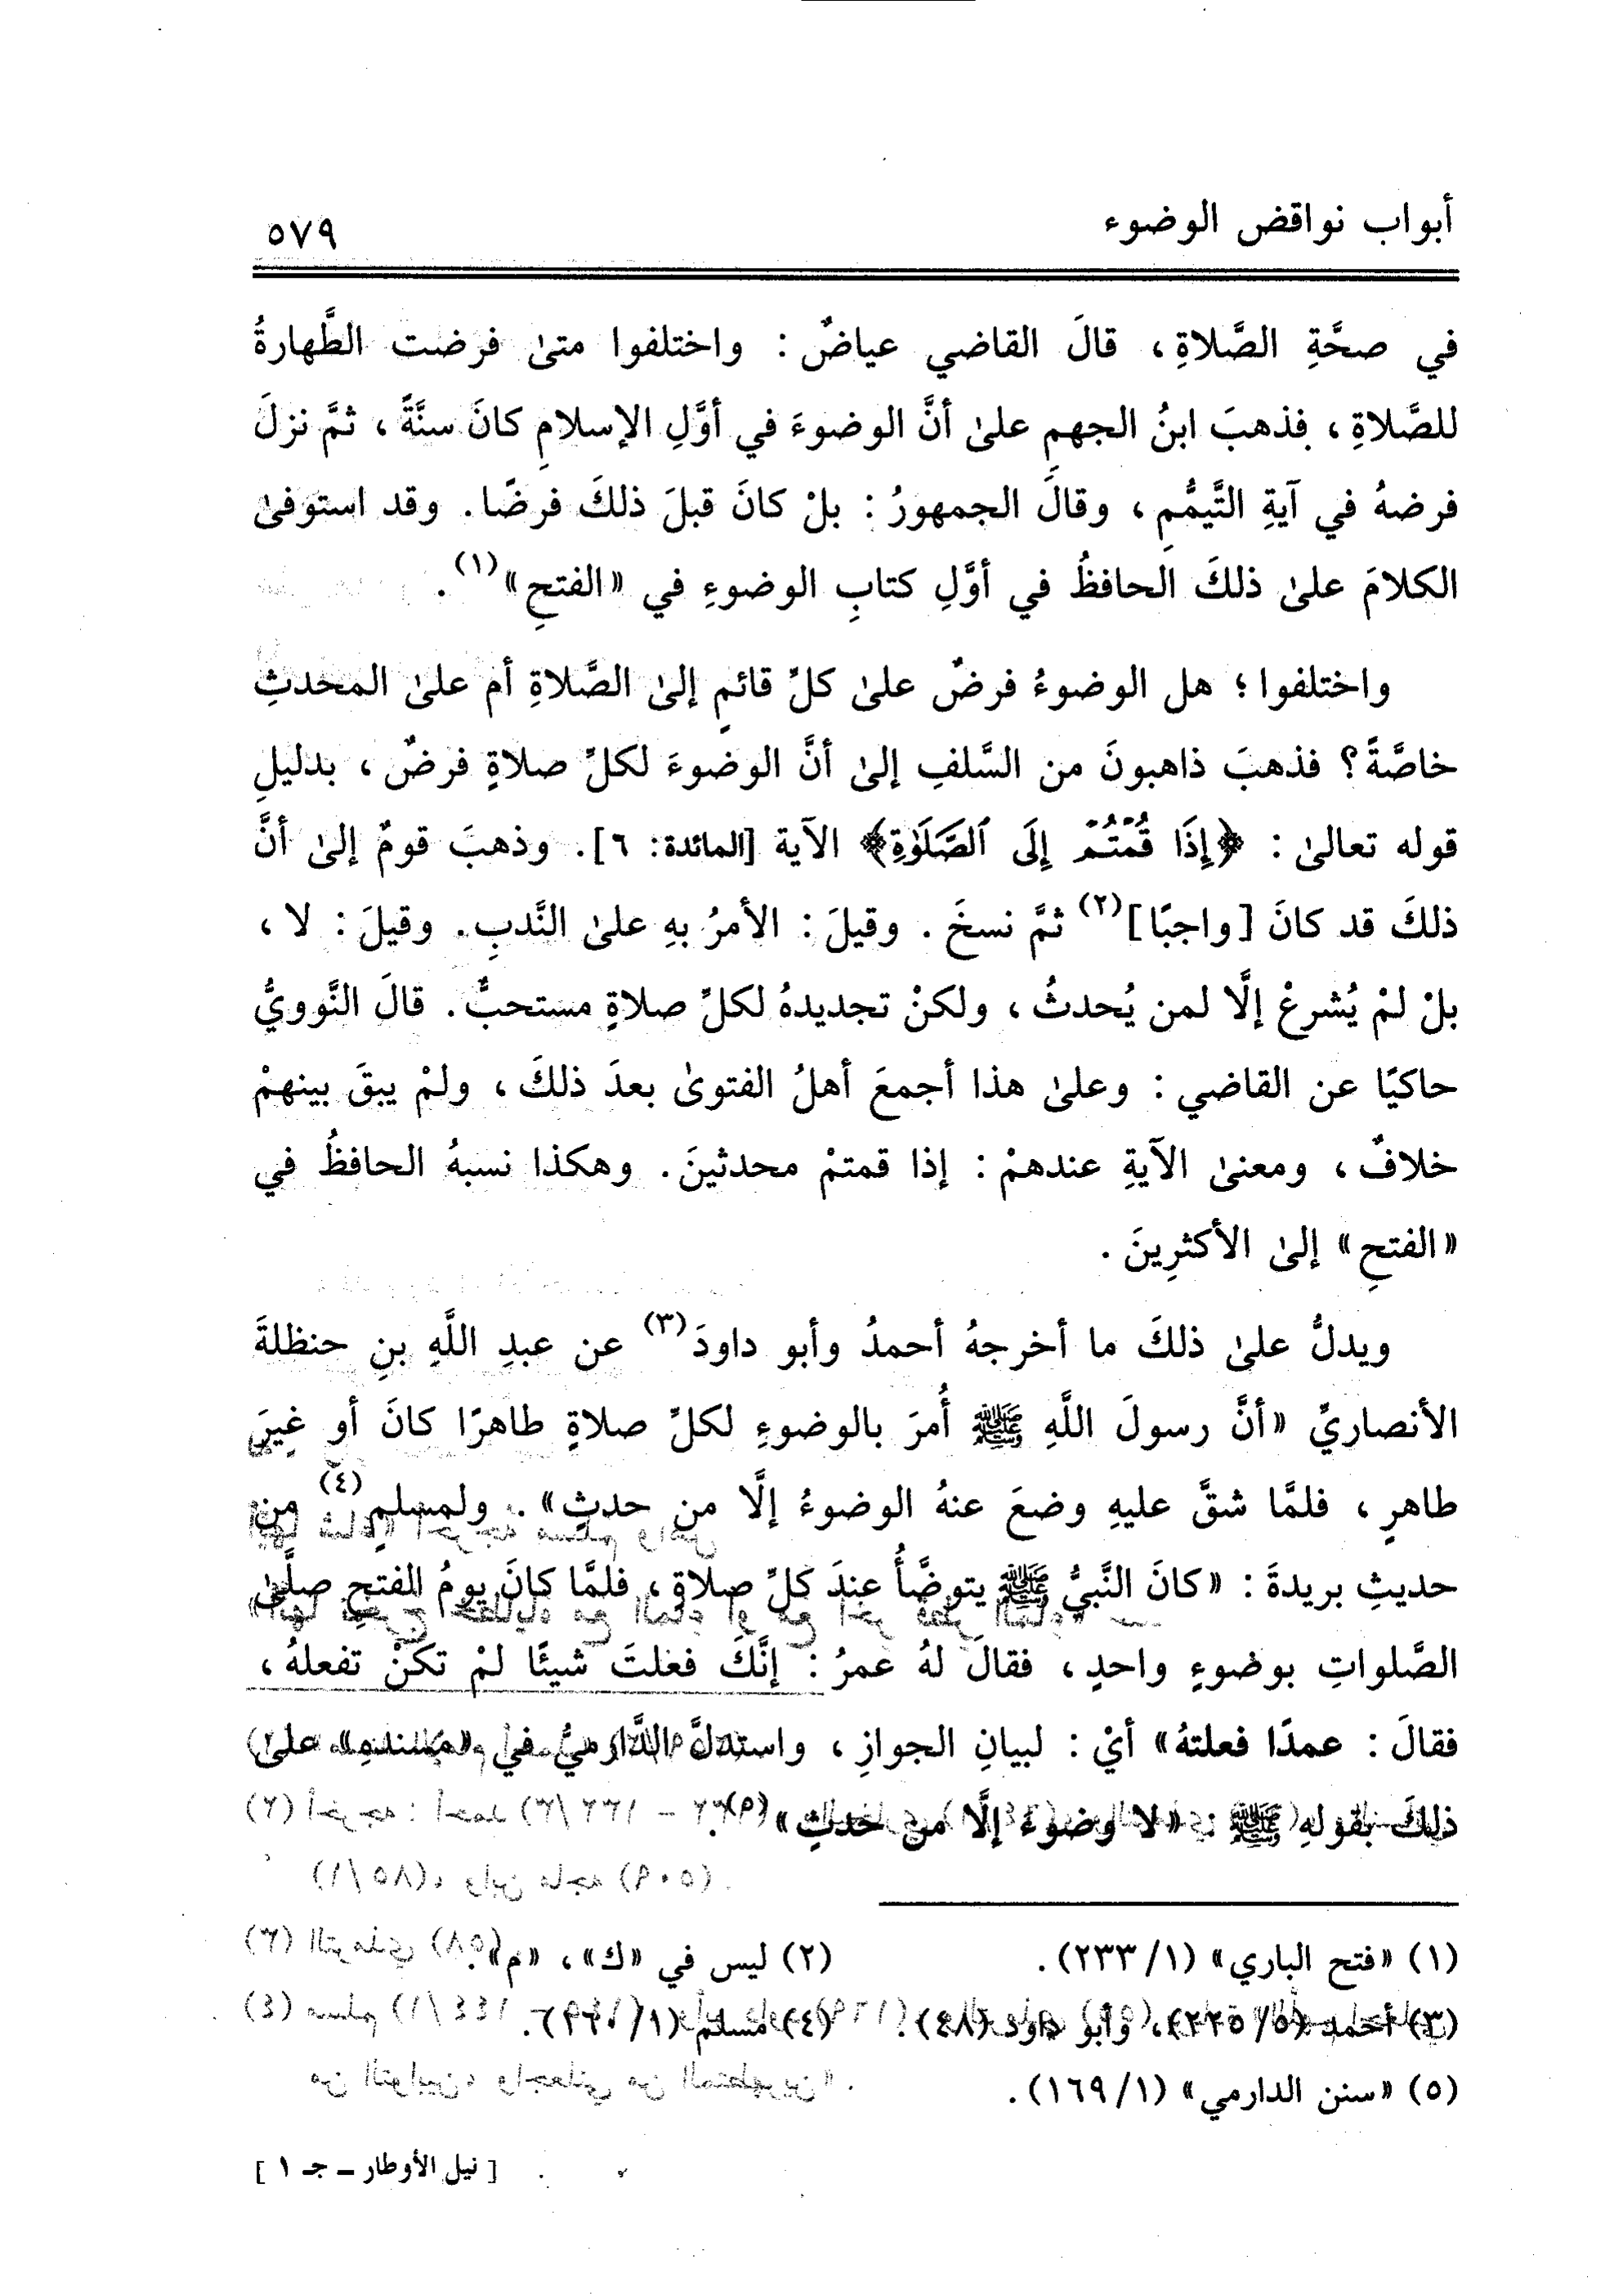 أبواب نواقض الوضوء
٥٧٩
في صحَّةِ الصَّلاةِ، قالَ القاضي عياضٌ : واختلفوا متىٰ فرضت الطَّهارةُ
للصَّلاةِ، فذهبَ ابنُ الجهمِ علىٰ أنَّ الوضوءَ في أوَّلِ الإسلامِ كانَ سنَّةً، ثمَّ نزلَ
فرضهُ في آيةِ التَّيمُّمِ، وقالَ الجمهورُ : بلْ كانَ قبلَ ذلكَ فرضًا. وقد استوفىٰ
الكلامَ علىٰ ذلكَ الحافظُ في أوَّلِ كتابِ الوضوءِ في «الفتحِ»(١).
واختلفوا؛ هل الوضوءُ فرضٌ علىٰ كلِّ قائمٍ إلىٰ الصَّلاةِ أم علىٰ المحدثِ
خاصَّةً؟ فذهبَ ذاهبونَ من السَّلفِ إلىٰ أنَّ الوضوءَ لكلِّ صلاةٍ فرضٌ، بدليلِ
قوله تعالىٰ : ﴿إِذَا قُمْتُمْ إِلَى ٱلصَّلَوٰةِ﴾ الآية [المائدة: ٦]. وذهبَ قومٌ إلىٰ أنَّ
ذلكَ قد كانَ [واجبًا](٢) ثمَّ نسخَ. وقيلَ : الأمرُ بهِ علىٰ النَّدبِ. وقيلَ : لا،
بلْ لمْ يُشرعْ إلَّا لمن يُحدثُ، ولكنْ تجديدهُ لكلِّ صلاةٍ مستحبٌّ. قالَ النَّوويُّ
حاكيًا عن القاضي : وعلىٰ هذا أجمعَ أهلُ الفتوىٰ بعدَ ذلكَ، ولمْ يبقَ بينهمْ
خلافٌ، ومعنىٰ الآيةِ عندهمْ : إذا قمتمْ محدثينَ. وهكذا نسبهُ الحافظُ في
«الفتحِ» إلىٰ الأكثرِينَ.
ويدلُّ علىٰ ذلكَ ما أخرجهُ أحمدُ وأبو داودَ(٣) عن عبدِ اللَّهِ بنِ حنظلةَ
الأنصاريِّ «أنَّ رسولَ اللَّهِ ﷺ أُمرَ بالوضوءِ لكلِّ صلاةٍ طاهرًا كانَ أو غيرَ
طاهرٍ، فلمَّا شقَّ عليهِ وضعَ عنهُ الوضوءُ إلَّا من حدثٍ». ولمسلمٍ(٤) من
حديثِ بريدةَ : «كانَ النَّبيُّ ﷺ يتوضَّأُ عندَ كلِّ صلاةٍ، فلمَّا كانَ يومُ الفتحِ صلَّىٰ
الصَّلواتِ بوضوءٍ واحدٍ، فقالَ لهُ عمرُ : إنَّكَ فعلتَ شيئًا لمْ تكنْ تفعلهُ،
فقالَ : عمدًا فعلتهُ» أيْ : لبيانِ الجوازِ، واستدلَّ الدَّارميُّ في «مسندهِ» علىٰ
ذلكَ بقولهِ ﷺ : «لا وضوءَ إلَّا من حدثٍ»
(١) «فتح الباري» (١/ ٢٣٣).
(٢) ليس في «ك»، «م».
(٣) أحمد (٥/ ٢٢٥)، وأبو داود (٤٨).
(٤) مسلم
(٥) «سنن الدارمي» (١/ ١٦٩).
[ نيل الأوطار – جـ ١ ]